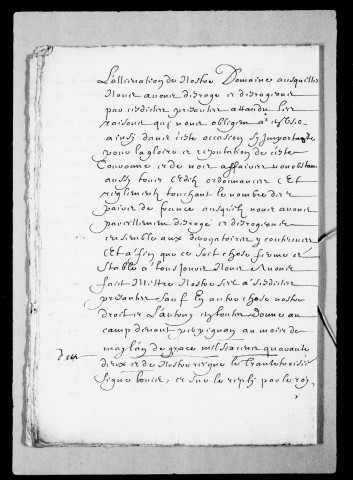 L'allienation de Nostre Domaine ausquelles
Nous avons derogé et derogeons
par cesdictes presentes attendu les
raisons qui nous obligent
ainsi dans cette occasion sy Importante
pour la gloire et reputation de ceste
Couronne et de nos affaires nonobstant
aussy tous Edits ordonnances Et
reglements touchant le nombre des
pairs de france ausquels nous avons
pareillement derogé et derogeons
ensemble aux derogatoires y contenues
Et afin que ce soit chose ferme et
stable à tousjours Nous avons
fait Mettre Nostre scel à cesdictes
presentes sauf En autre chose nostre
droit et L'autruy en toutte donné au
camp devant perpignan au mois de
may l'an de grace mil six cens quarante
deux et de Nostre reigne le trante troisie
signé Louis, et sur le reply par le roy,